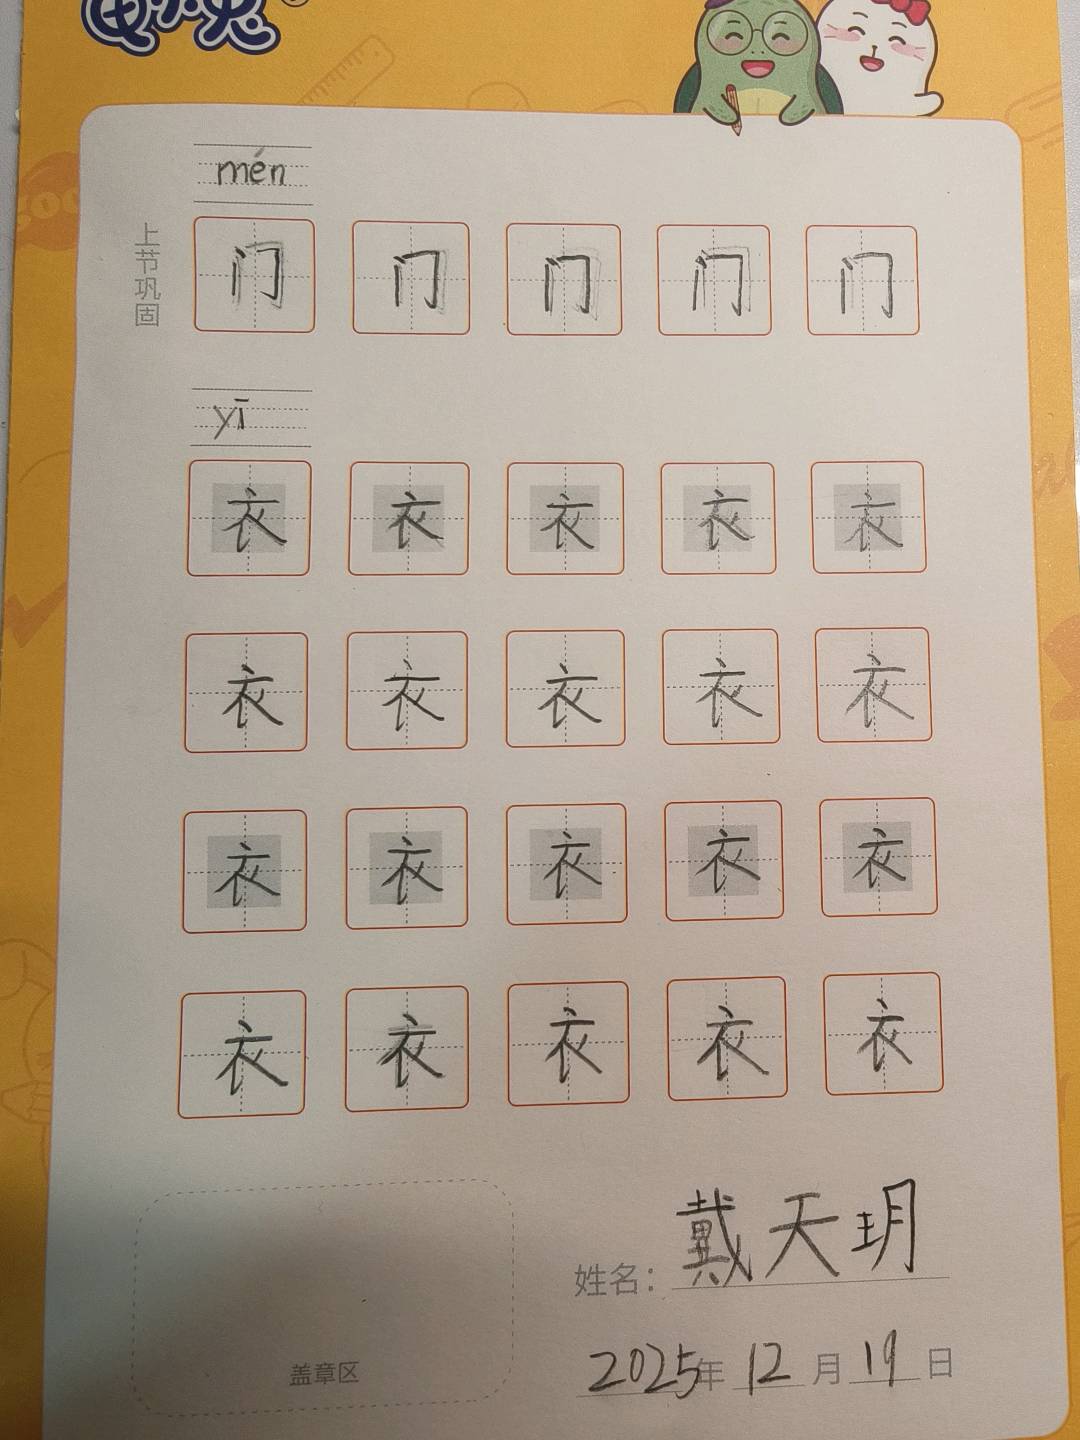 mén
上节巩固
门 门 门 门 门
yī
衣 衣 衣 衣 衣
衣 衣 衣 衣 衣
衣 衣 衣 衣 衣
衣 衣 衣 衣 衣
姓名: 戴天玥
2025年 12月 19日
盖章区